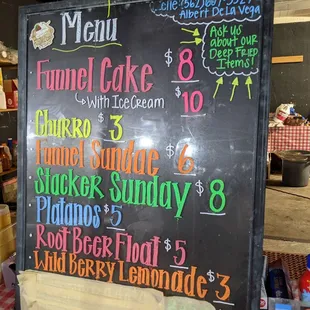 Menu
Albert De La Vega
Ask us
about our
Deep Fried
Items!
Funnel Cake $8
With Ice Cream $10
Churro $3
Funnel Sundae $6
Stacker Sunday $8
Platanos $5
Root Beer Float $5
Wild Berry Lemonade $3